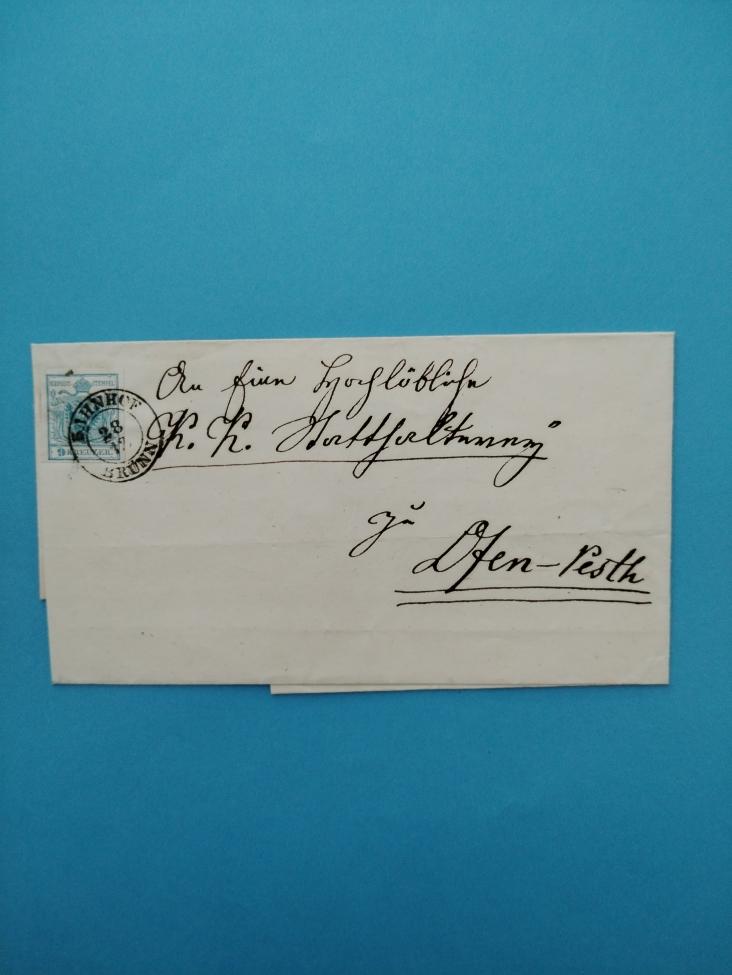 KKPOST-STEMPEL
9 KREUZER
BAHNHOF
28
BRÜNN
An Eine Hochlöbliche
K. K. Statthalterey
zu
Ofen-Pesth